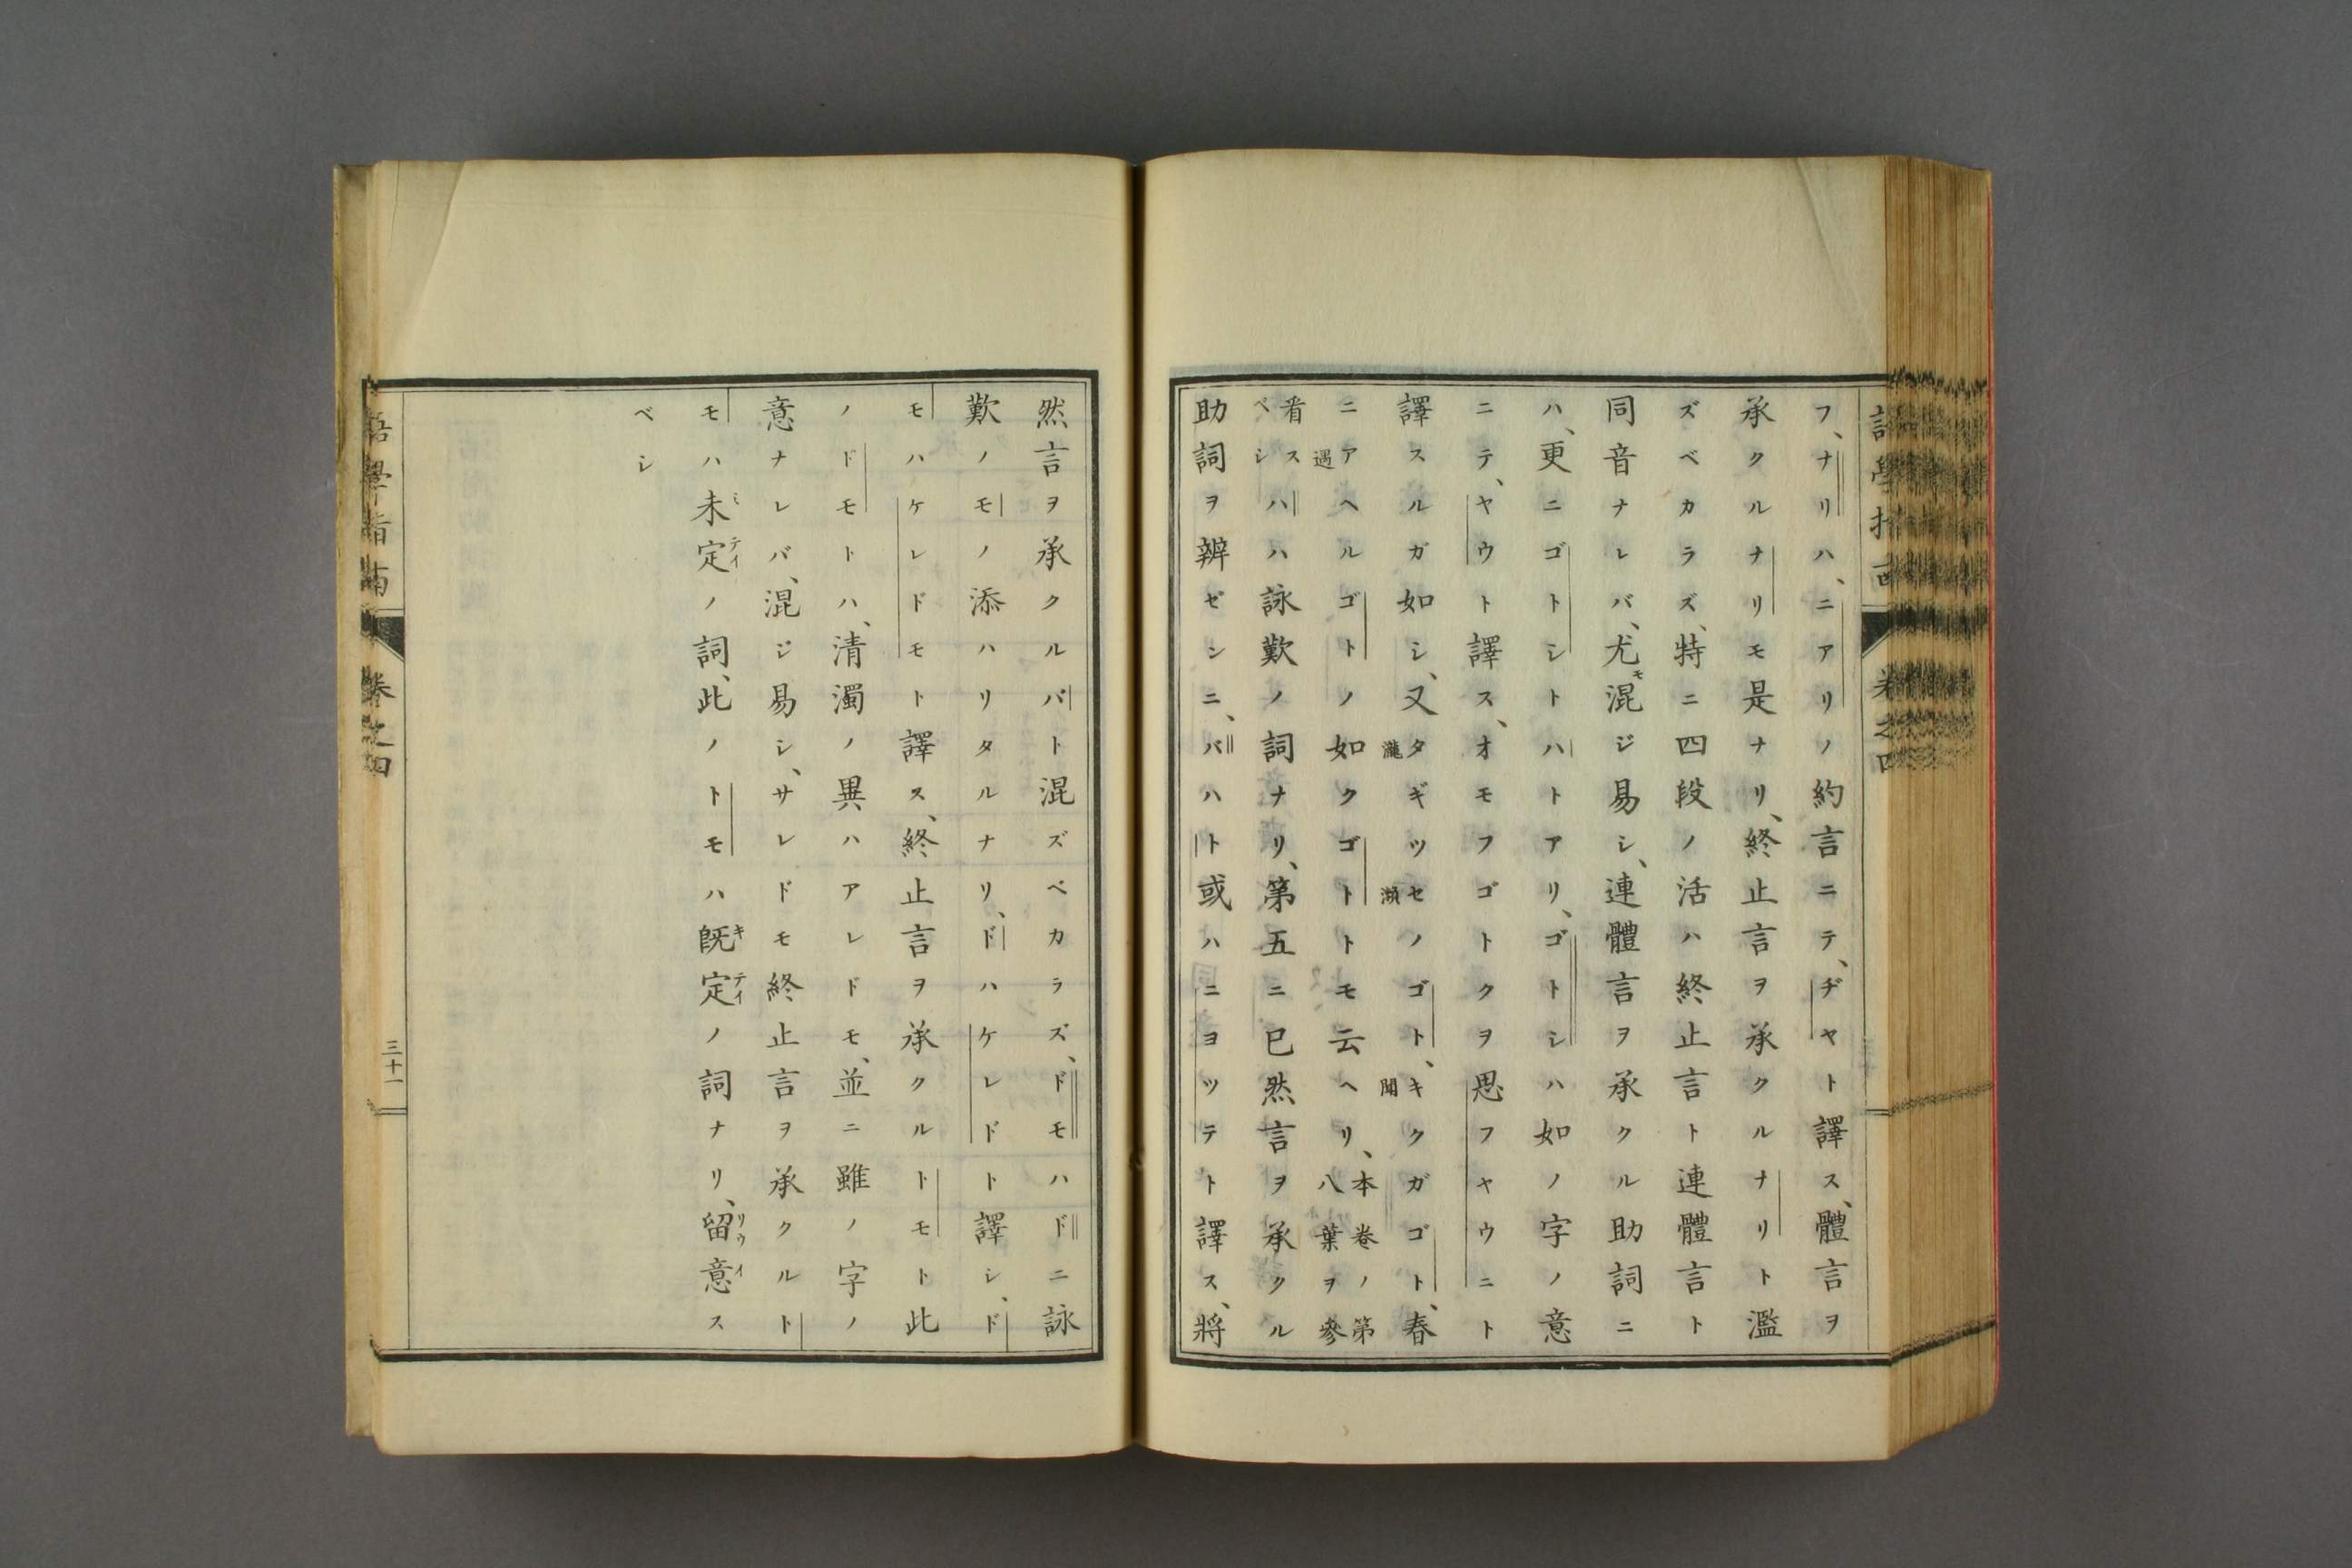 フ、ナリハ、ニアリノ約言ニテ、ヂヤト譯ス、體言ヲ
承クルナリモ是ナリ、終止言ヲ承クルナリト濫
ズベカラズ、特ニ四段ノ活ハ終止言ト連體言ト
同音ナレバ、尤モ混ジ易シ、連體言ヲ承クル助詞ニ
ハ、更ニゴトシトハトアリ、ゴトシハ如ノ字ノ意
ニテ、ヤウト譯ス、オモフゴトクヲ思フヤウニト
譯スルガ如シ、又タギツセノゴト、キクガゴト、春
瀧瀬聞
ニアヘルゴトノ如クゴトトモ云ヘリ、本卷ノ第八葉ヲ參
遇
看スベシハハ詠歎ノ詞ナリ、第五ニ已然言ヲ承クル
助詞ヲ辨ゼシニ、バハト或ハニヨツテト譯ス、將
然言ヲ承クルバト混ズベカラズ、ドモハドニ詠
歎ノモノ添ハリタルナリ、ドハケレドト譯シ、ド
モハケレドモト譯ス、終止言ヲ承クルトモト此
ノドモトハ、清濁ノ異ハアレドモ、並ニ雖ノ字ノ
意ナレバ、混ジ易シ、サレドモ終止言ヲ承クルト
モハ未定ノ詞、此ノトモハ既定ノ詞ナリ、留意ス
ミテイ キテイ リウイ
ベシ
語學指南 卷之四 三十一